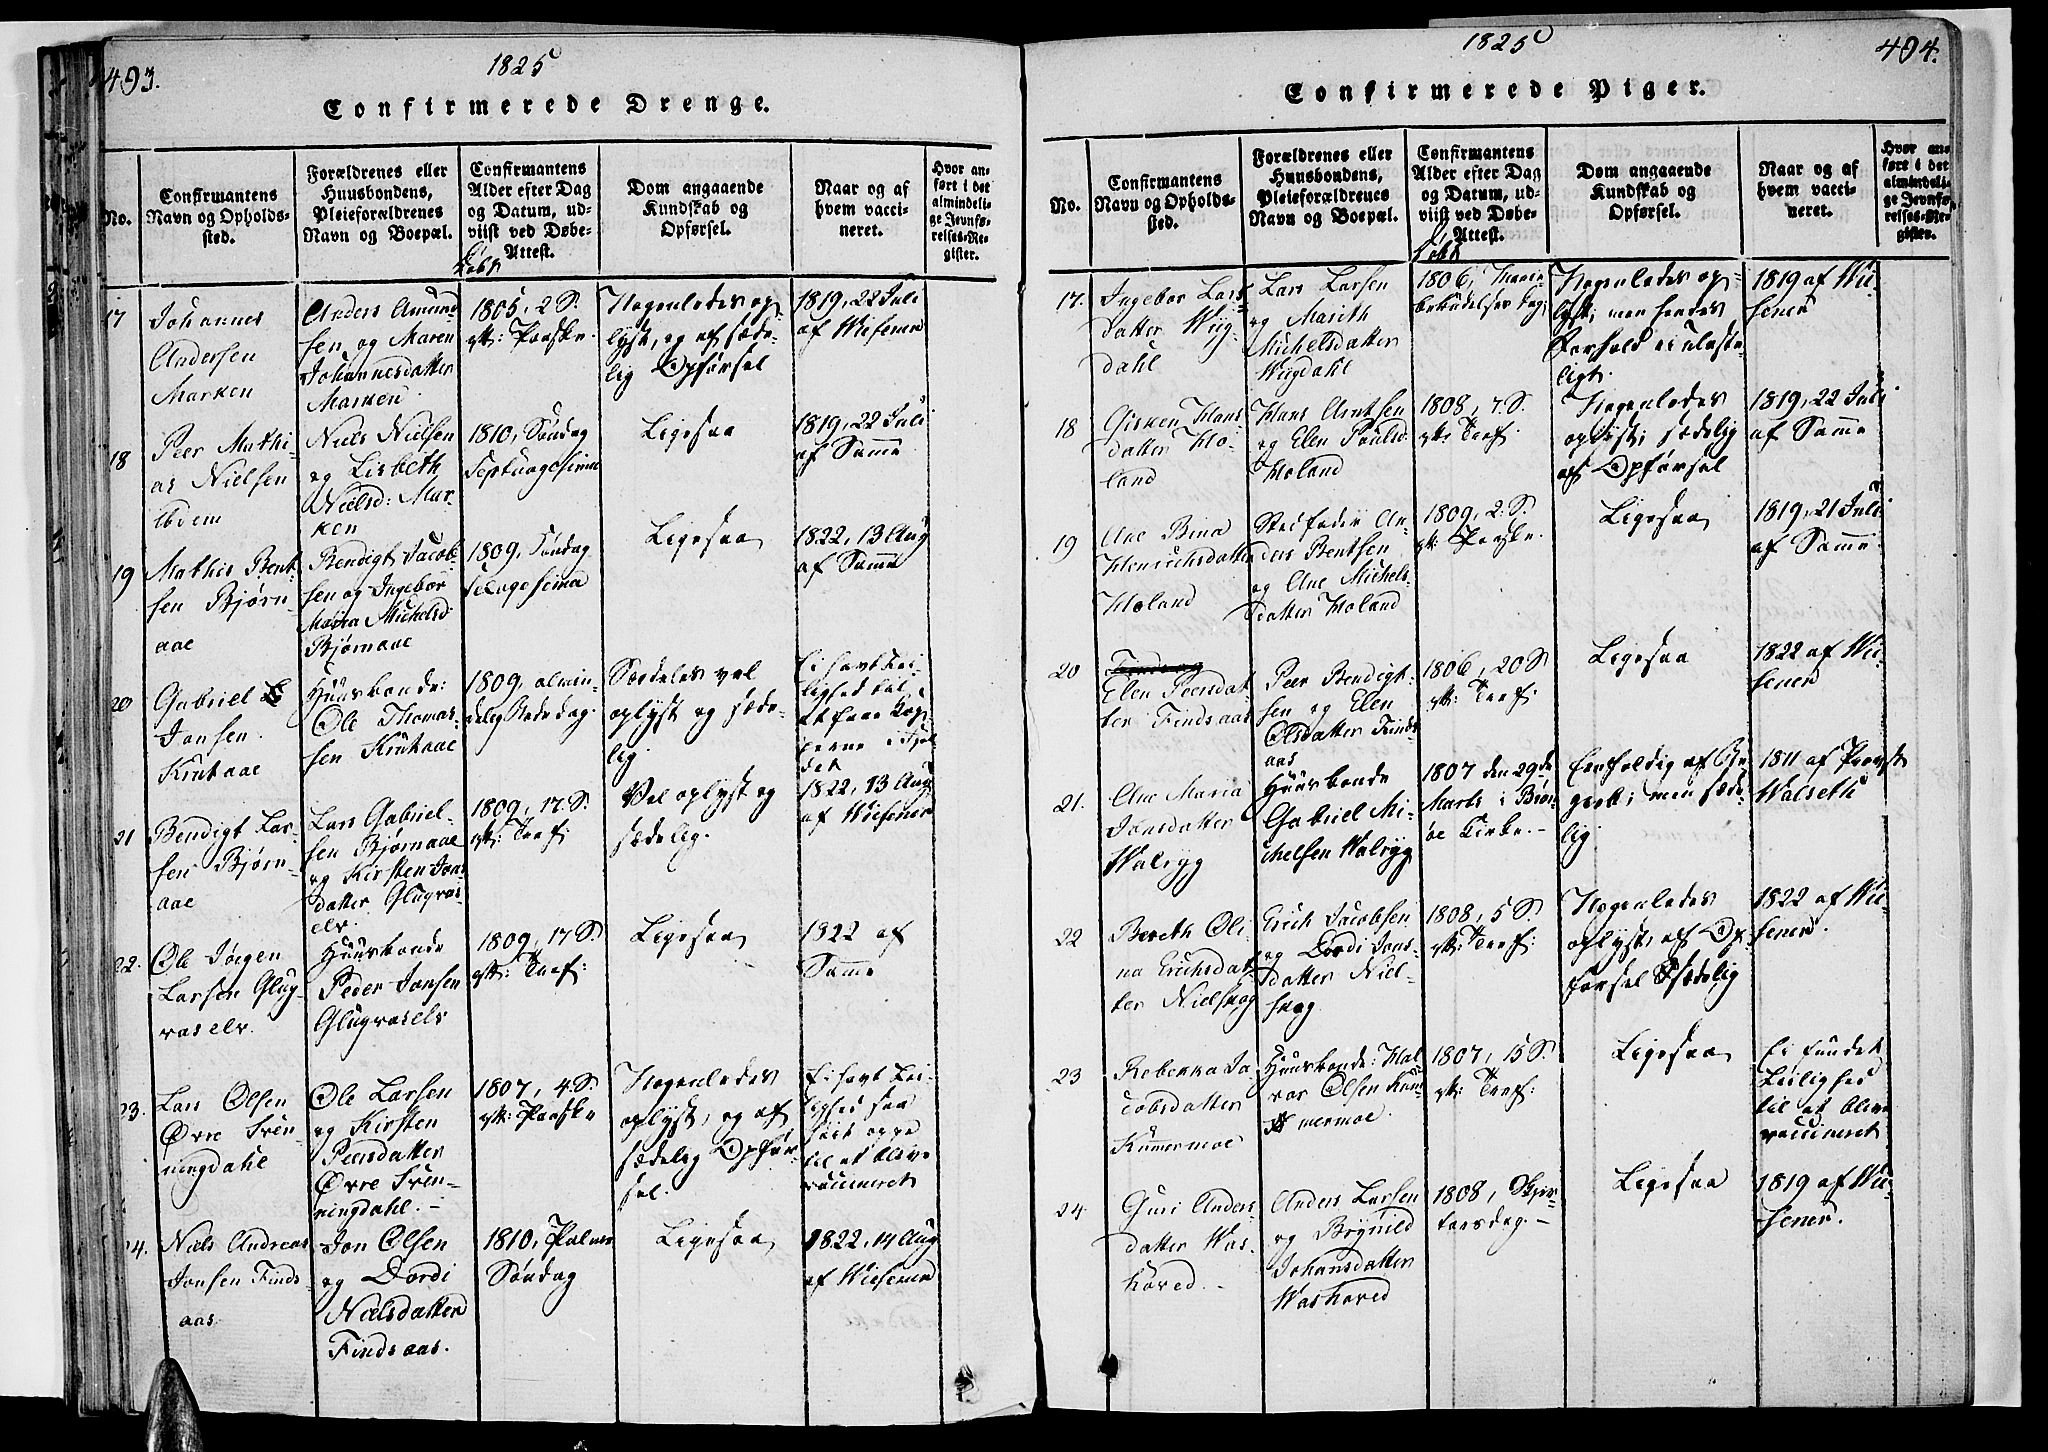 493.
1825
Confirmerede Drenge.
No.
Confirmantens
Navn og Opholds-
sted.
Forældrenes eller
Huusbondens,
Pleieforældrenes
Navn og Boepæl.
Confirmantens
Alder efter Dag
og Datum, ud-
viist ved Døbe-
Attest.
Dom angaaende
Kundskab og
Opførsel.
Naar og af
hvem vacci-
neret.
Hvor an-
ført i det
almindeli-
ge Jevnfø-
relses-Re-
gister.
døbt
17
Johannes
Andersen
Marken
Anders Amund-
sen og Maren
Johannesdatter
Marken.
1805, 2 S.
ft: Paaske.
Nogenledes op-
lyst, og af sæde-
lig Opførsel
1819, 22 Juli
af Wisener
18
Peer Mathi-
as Nielsen
ibdem
Niels Nielsen
og Lisbeth
Nielsd: Mar-
ken
1810, Søndag
Septuagesima
Ligesaa
1819, 22 Juli
af Samme
19
Mathis Bent-
sen Bjørn-
aae
Bendigt Jacob-
sen og Ingebor
Maria Michelsd
Bjørnaae
1809, Søndag
Sexagesima
Ligesaa
1822, 13 Aug
af Samme
20
Gabriel
Jonsen
Krutaae
Huusbonde:
Ole Thomas-
sen Krutaae
1809, almin-
delig Bededag.
Særdeles vel
oplyst og sæde-
lig
Ei havt Lei-
lighed til
at faae Kop-
perne i Fjel-
det
21
Bendigt Lar-
sen Bjørn-
aae
Lars Gabriel-
sen Bjørnaae
og Kirsten Jons
datter Glugvas-
elv.
1809, 17. S.
ft: Tref:
Vel oplyst og
sædelig.
1822, 13 Aug
af Wisener
22.
Ole Jørgen
Larsen Glug-
vaselv.
Huusbonde
Peder Jonsen
Glugvaselv
1809, 17 S.
ft: Tref:
Ligesaa
1822 af
Samme
23.
Lars Olsen
Øvre Sven-
ningdahl
Ole Larsen
og Kirsten
Peersdatter
Øvre Sven-
ningdahl.-
1807, 4. S.
ft: Paaske
Nogenledes
oplyst, og af
sædelig Opfør-
sel.
Ei havt Lei-
lighed saa
til at blive
vaccineret
24.
Niels Andreas
Jonsen Finds-
aas
Jon Olsen
og Dordi
Nielsdatter
Findsaas.
1810, Palme
Søndag
Ligesaa
1822, 14 Aug
af Wisener
1825
494.
Confirmerede Piger.
No.
Confirmantens
Navn og Opholds-
sted.
Forældrenes eller
Huusbondens,
Pleieforældrenes
Navn og Boepæl.
Confirmantens
Alder efter Dag
og Datum, ud-
viist ved Døbe-
Attest.
Dom angaaende
Kundskab og
Opførsel.
Naar og af
hvem vacci-
neret.
Hvor an-
ført i det
almindeli-
ge Jevnfø-
relses-Re-
gister.
døbt
17.
Ingebor Lars
datter Wiig-
dahl
Lars Larsen
og Marith
Michelsdatter
Wiigdahl
1806, Mariæ
bebudelses Dag
Nogenledes op-
lyst, men hendes
Forhold ei ulaste-
ligt.
1819 af Wi-
sener
18
Hans
datter Ho-
land
Hans Arntsen
og Elen Poulsd
Holand
1808, 7. S.
ft: Tref:
Nogenledes
oplyst, sædelig
af Opførsel
1819, 22 Juli
af Samme
19
Ane Bina
Henrichsdatter
Holand
Stedfader An-
ders Bentsen
og Ane Michels-
datter Holand
1809, 2. S.
ft: Paaske.
Ligesaa
1819, 21 Juli
af Samme.
20
Elen Peersdat-
ter Findsaas
Peer Bendigt-
sen og Elen
Olsdatter Finds-
aas
1806, 20 S
ft: Tref:
Ligesaa
1822 af Wi-
sener
21.
Ane Maria
Jonsdatter
Walryg
Huusbonde
Gabriel Mi-
chelsen Walryg
1807 den 29de
Marts i Brøn-
øe Kirke.-
Eenfoldig af Be-
greb, men sæde-
lig.
1811 af Provst
Walseth
22
Bereth Oli-
na Erichsdat-
ter Nielskog
Erich Jacobsen
og Dordi Jons-
datter Niel-
skog
1808, 5 S.
ft: Tref:
Nogenledes
oplyst, af Op-
førsel sædelig
1822 af Wi-
sener.
23
Rebekka Ja-
cobsdatter
Kummermoe
Huusbonde: Hal-
vor Olsen Kum-
mermoe.
1807, 15 S.
ft: Tref:
Ligesaa
Ei fundet
Leilighed
til at blive
vaccineret
24.
Guri Anders-
datter Was-
hoved.-
Anders Larsen
og Brynild
Johansdatter
Washoved
1808, Skjær-
torsdag.-
Ligesaa
1819 af Wi-
sener.